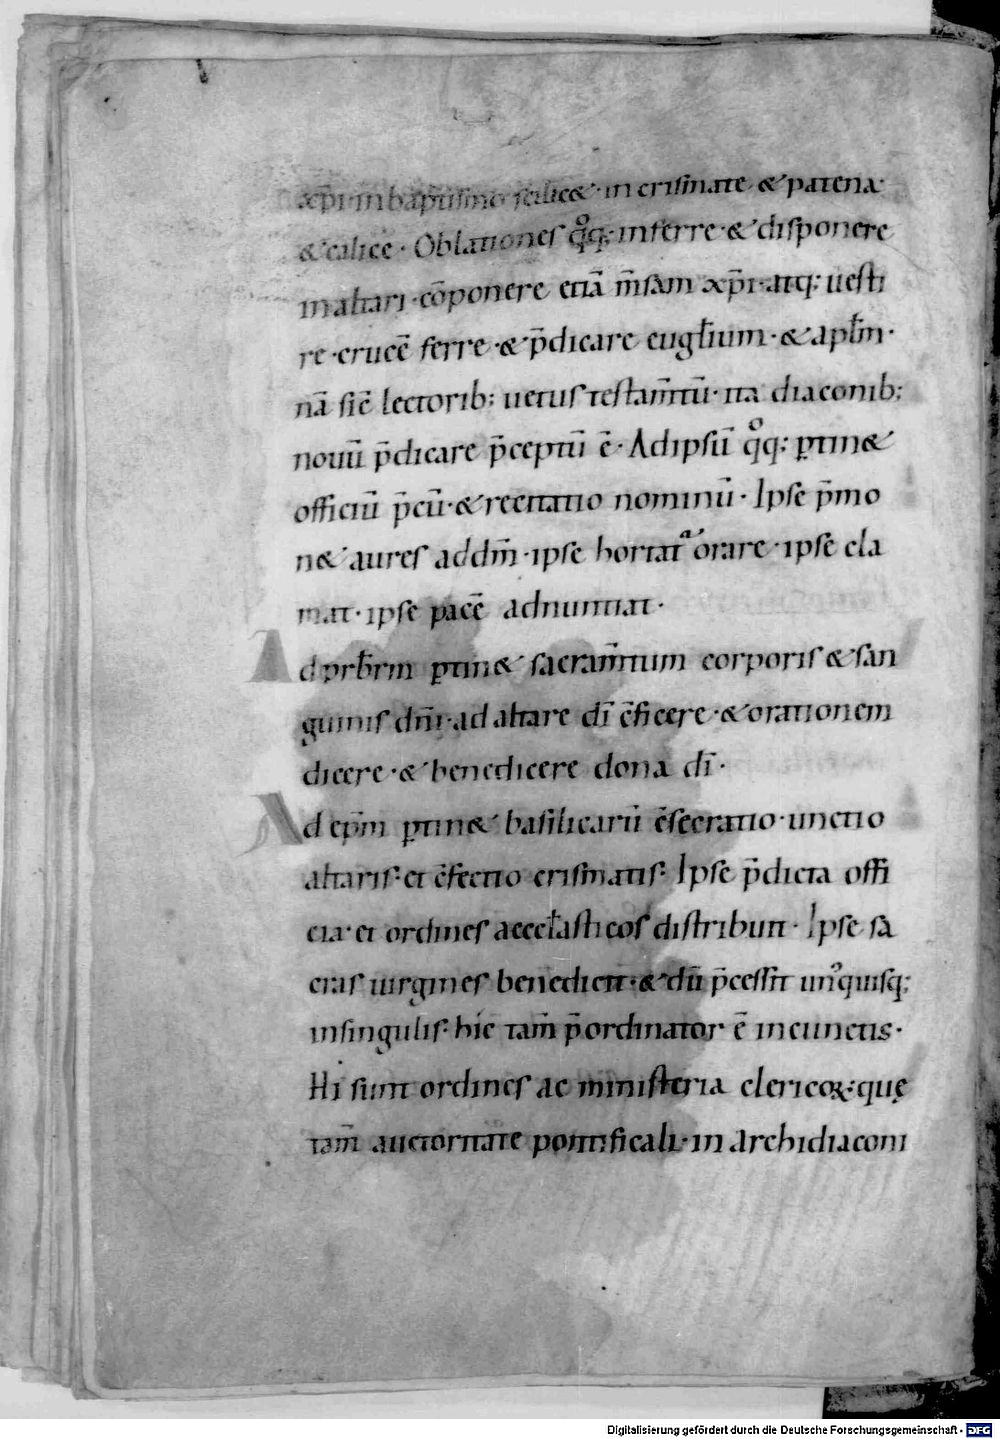 xp̄i· in baptismo scilic&· in crismate· & patena·
& calice· Oblationes qͦq; inferre· & disponere
in altari· cōponere etiā m̄sam xp̄i· atq; uesti
re· crucē ferre· & p̄dicare euḡlium· & apl̄m·
nā sic̄ lectorib; uetus testam̄tū· ita diaconib;
nouū p̄dicare p̄ceptū ē· Ad ipsū qͦq; ꝑtin&
officiū p̄cū· & recitatio nominū· Ipse p̄mo
n& aures ad dm̄· ipse hortat orare· ipse cla
mat· ipse pacē adnuntiat·
Ad prb̄rm ꝑtin& sacram̄tum corporis & san
guinis dn̄i· ad altare dī c̄ficere· & orationem
dicere· & benedicere dona dī·
Ad ep̄m ꝑtin& basilicarū c̄secratio· unctio
altaris· et c̄fectio crismatis· Ipse p̄dicta offi
cia· et ordines aeccl̄asticos distribuit· Ipse sa
cras uirgines benedicit· & dū p̄cess̄it unͦquisq;
in singulis· hic tam̄ p̄ordinator ē in cunctis·
Hi sunt ordines ac ministeria clericoꝝ· quę
tam̄ auctoritate pontificali· in archidiaconi
Digitalisierung gefördert durch die Deutsche Forschungsgemeinschaft - DFG